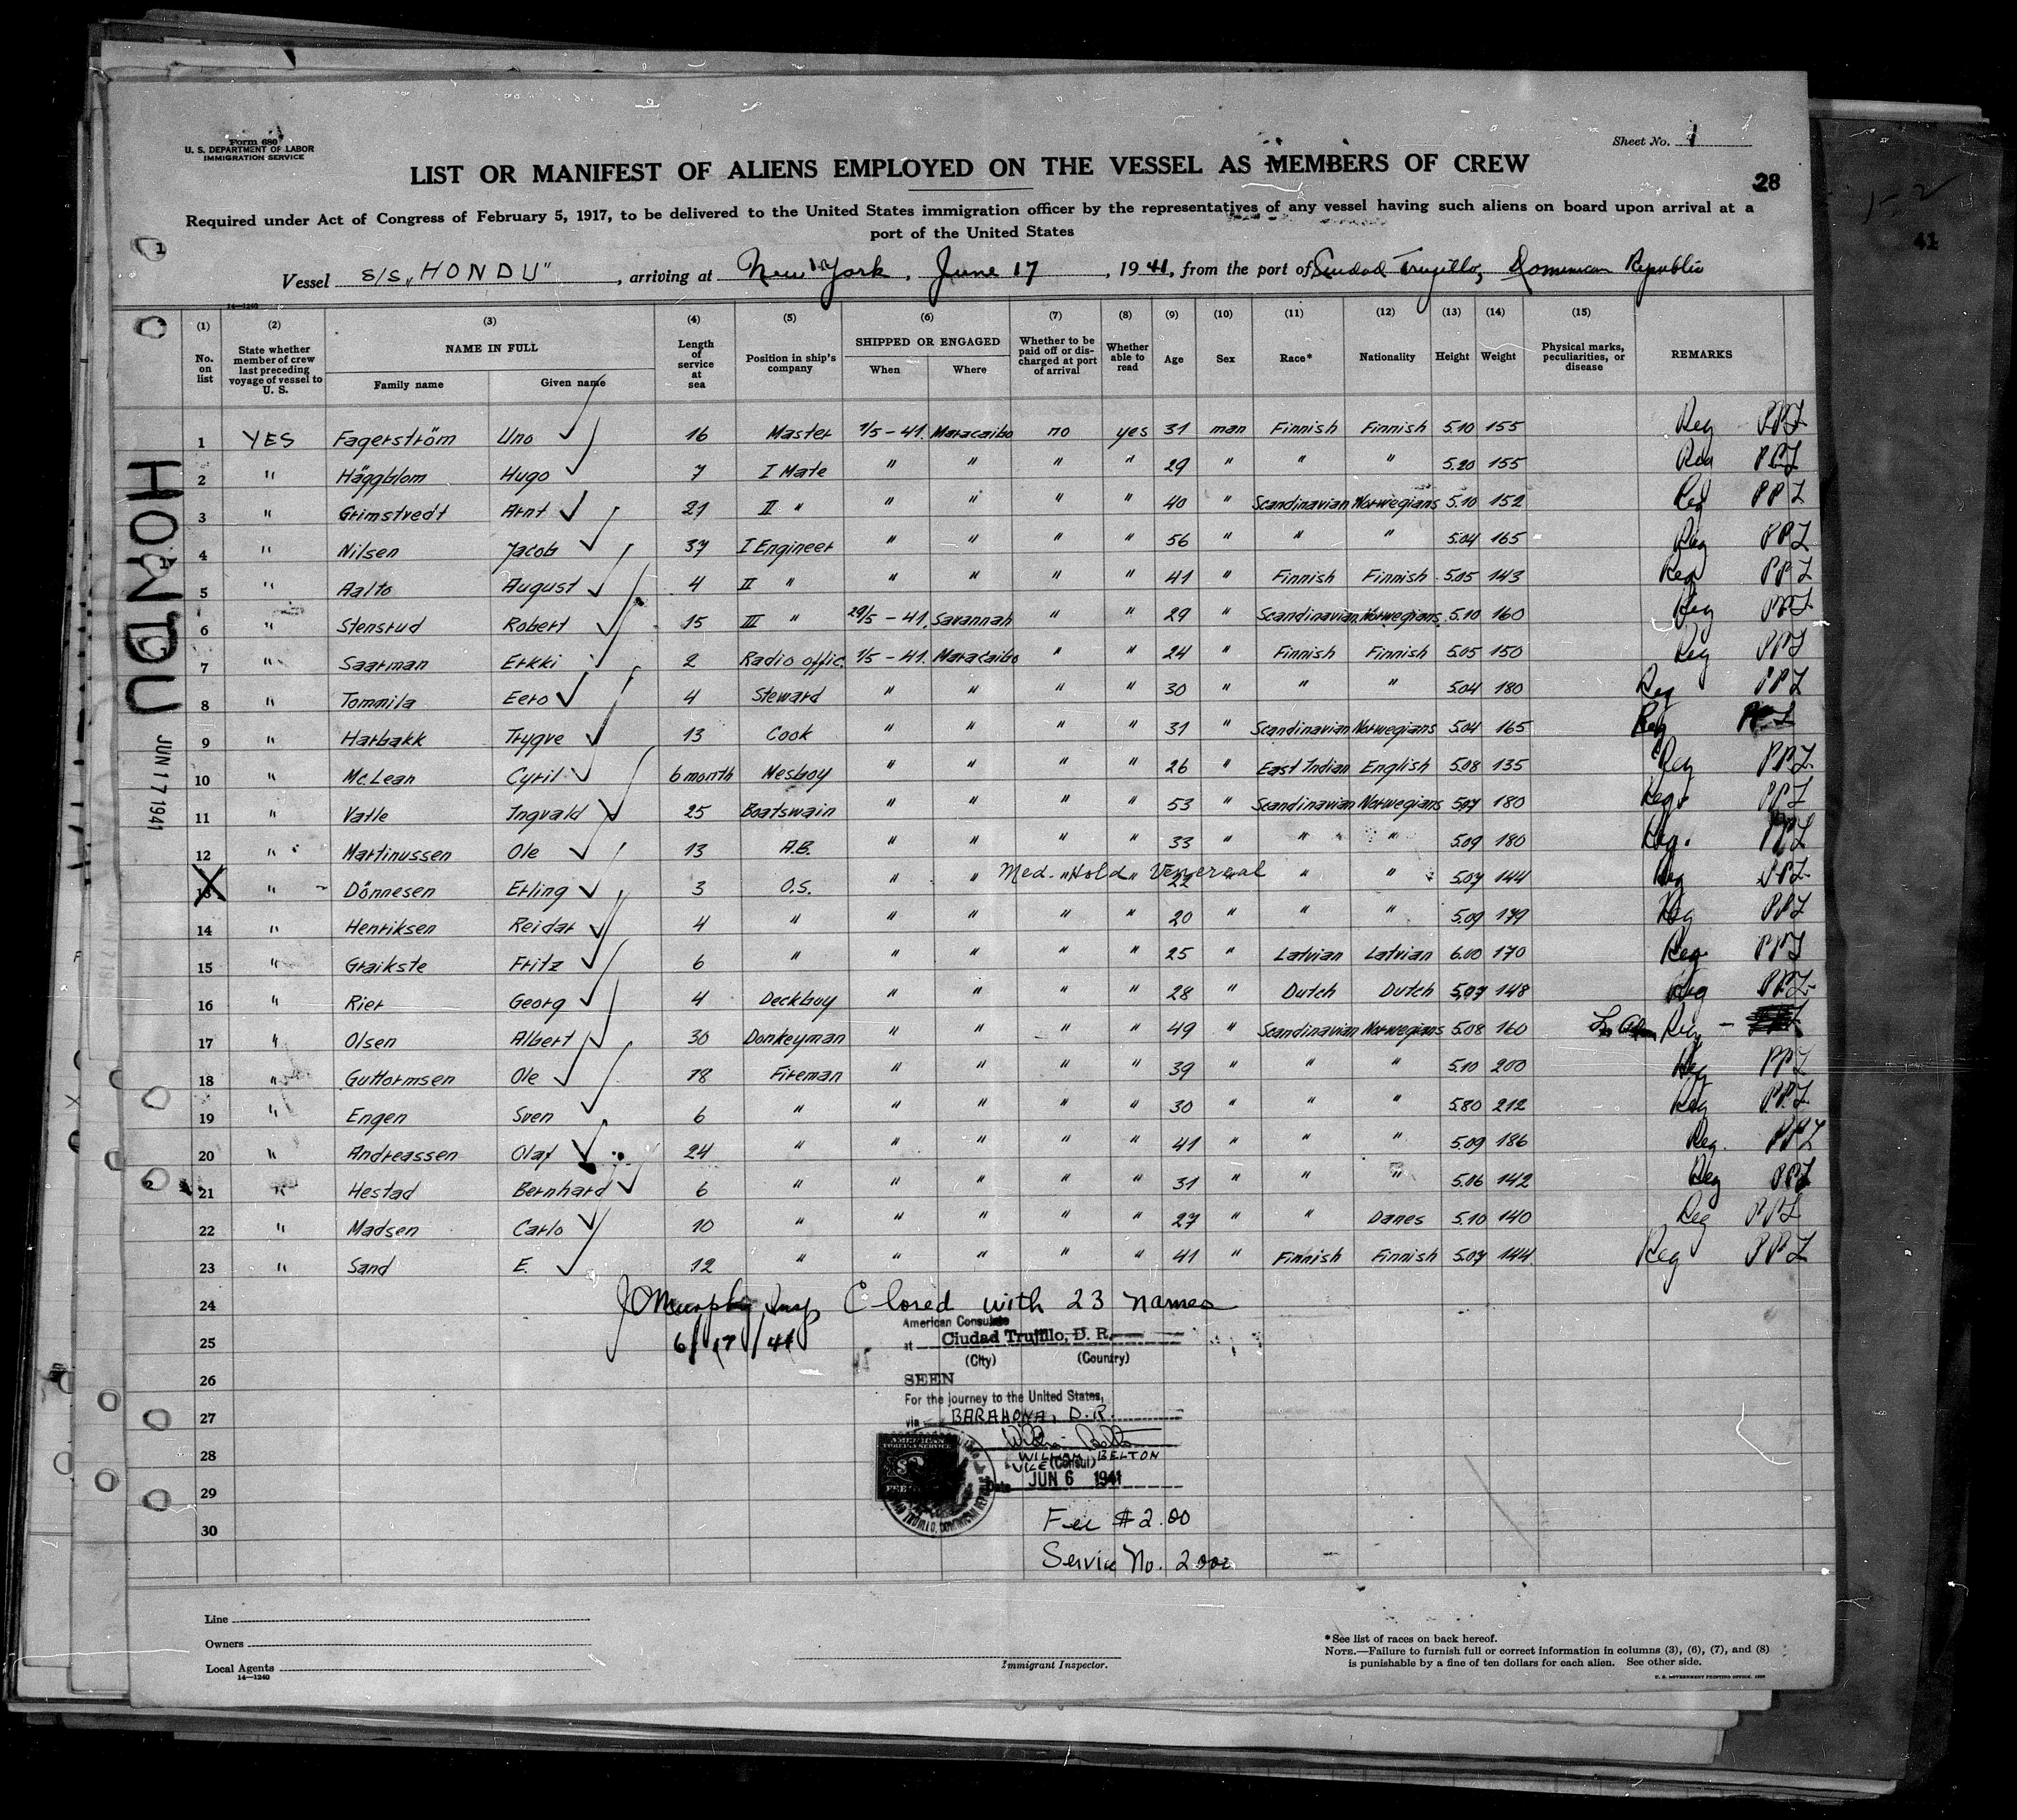 Form 680
U. S. DEPARTMENT OF LABOR
IMMIGRATION SERVICE
Sheet No. 1
LIST OR MANIFEST OF ALIENS EMPLOYED ON THE VESSEL AS MEMBERS OF CREW
28
Required under Act of Congress of February 5, 1917, to be delivered to the United States immigration officer by the representatives of any vessel having such aliens on board upon arrival at a
port of the United States
41
Vessel S/S „HONDU" , arriving at New York, June 17 , 1941, from the port of Ciudad Trujillo, Dominican Republic
14—1240
(1) (2) (3) (4) (5) (6) (7) (8) (9) (10) (11) (12) (13) (14) (15)
No. on list State whether member of crew last preceding voyage of vessel to U. S. NAME IN FULL Family name Given name Length of service at sea Position in ship's company SHIPPED OR ENGAGED When Where Whether to be paid off or discharged at port of arrival Whether able to read Age Sex Race* Nationality Height Weight Physical marks, peculiarities, or disease REMARKS
1 YES Fagerström Uno 16 Master 7/5-41. Maracaibo no yes 31 man Finnish Finnish 5.10 155 Reg PPL
2 " Häggblom Hugo 7 I Mate " " " " 29 " " " 5.20 155 Reg
3 " Grimstvedt Arnt 21 II " " " " " 40 " Scandinavian Norwegians 5.10 152 Reg PPL
4 " Nilsen Jacob 37 I Engineer " " " " 56 " " " 5.04 165 Reg PPL
5 " Aalto August 4 II " " " " " 41 " Finnish Finnish 5.05 143 Reg PPL
6 " Stensrud Robert 15 III " 29/5-41. Savannah " " 29 " Scandinavian Norwegians 5.10 160 Reg PPL
7 " Saarman Erkki 2 Radio offic. 7/5-41. Maracaibo " " 24 " Finnish Finnish 5.05 150 Reg PPL
8 " Tommila Eero 4 Steward " " " " 30 " " " 5.04 180 Reg PPL
9 " Harbakk Trygve 13 Cook " " " " 31 " Scandinavian Norwegians 5.04 165 Reg
10 " McLean Cyril 6 month Mesboy " " " " 26 " East Indian English 5.08 135 Reg PPL
11 " Vatle Ingvald 25 Boatswain " " " " 53 " Scandinavian Norwegians 5.07 180 Reg. PPL
12 " Martinussen Ole 13 A.B. " " " " 33 " " " 5.09 180 Reg. PPL
13 " Dönnesen Erling 3 O.S. " " Med. Hold Venereal " " 22 " " " 5.07 144 Reg PPL
14 " Henriksen Reidar 4 " " " " " 20 " " " 5.09 179 Reg PPL
15 " Graikste Fritz 6 " " " " " 25 " Latvian Latvian 6.00 170 Reg. PPL
16 " Rier Georg 4 Deckboy " " " " 28 " Dutch Dutch 5.07 148 Reg PPL
17 " Olsen Albert 30 Donkeyman " " " " 49 " Scandinavian Norwegians 5.08 160 Reg -
18 " Guttormsen Ole 18 Fireman " " " " 39 " " " 5.10 200 Reg PPL
19 " Engen Sven 6 " " " " " 30 " " " 5.80 212 Reg PPL
20 " Andreassen Olaf 24 " " " " " 41 " " " 5.09 186 Reg. PPL
21 " Hestad Bernhard 6 " " " " " 31 " " " 5.06 142 Reg PPL
22 " Madsen Carlo 10 " " " " " 27 " " Danes 5.10 140 Reg PPL
23 " Sand E. 12 " " " " " 41 " Finnish Finnish 5.07 144 Reg PPL
24 J O Murphy Insp Closed with 23 names
6/17/41
American Consulate
25 at Ciudad Trujillo, D. R.
(City) (Country)
26 SEEN
For the journey to the United States,
27 via BARAHONA, D.R.
William Belton
28 WILLIAM BELTON
VICE (Consul)
29 Date JUN 6 1941
AMERICAN
FOREIGN SERVICE
FEE
30 Fee $2.00
Service No. 2000
HONDU
JUN 17 1941
Line
Owners
Local Agents
14—1240
Immigrant Inspector.
*See list of races on back hereof.
NOTE.—Failure to furnish full or correct information in columns (3), (6), (7), and (8)
is punishable by a fine of ten dollars for each alien. See other side.